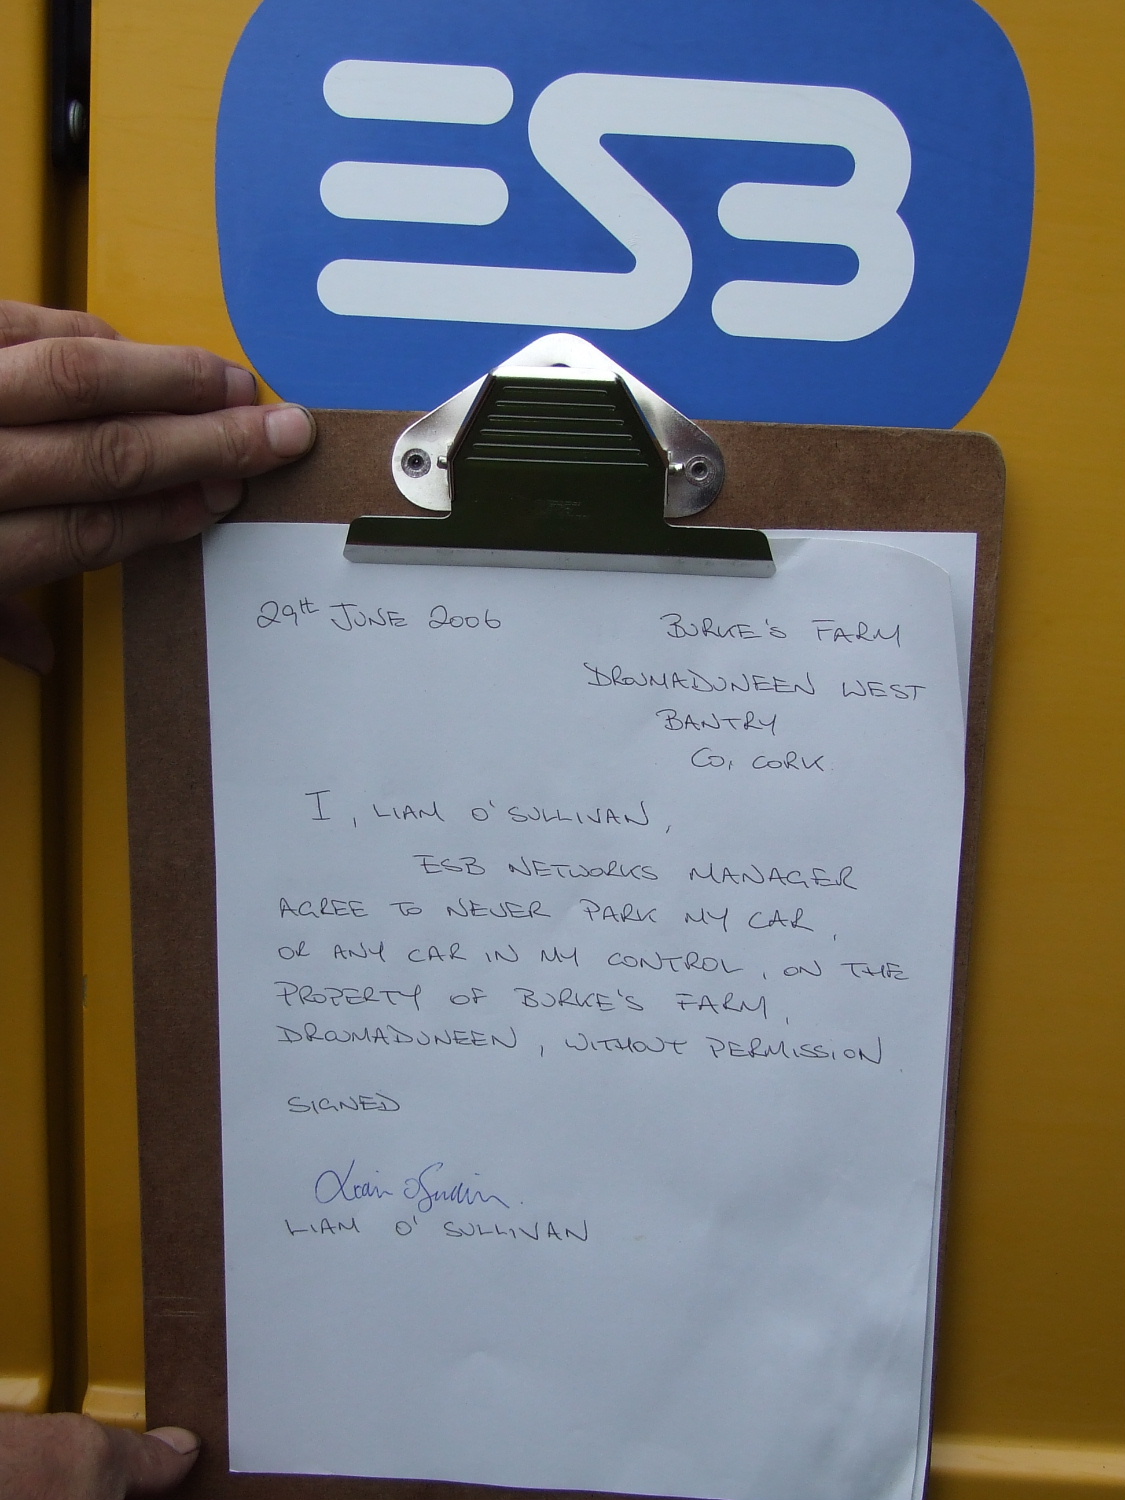 ESB
29th JUNE 2006
BURKE'S FARM
DROMADUNEEN WEST
BANTRY
CO. CORK
I, LIAM O'SULLIVAN,
ESB NETWORKS MANAGER
AGREE TO NEVER PARK MY CAR,
OR ANY CAR IN MY CONTROL, ON THE
PROPERTY OF BURKE'S FARM,
DROMADUNEEN, WITHOUT PERMISSION.
SIGNED
Liam O'Sullivan.
LIAM O' SULLIVAN